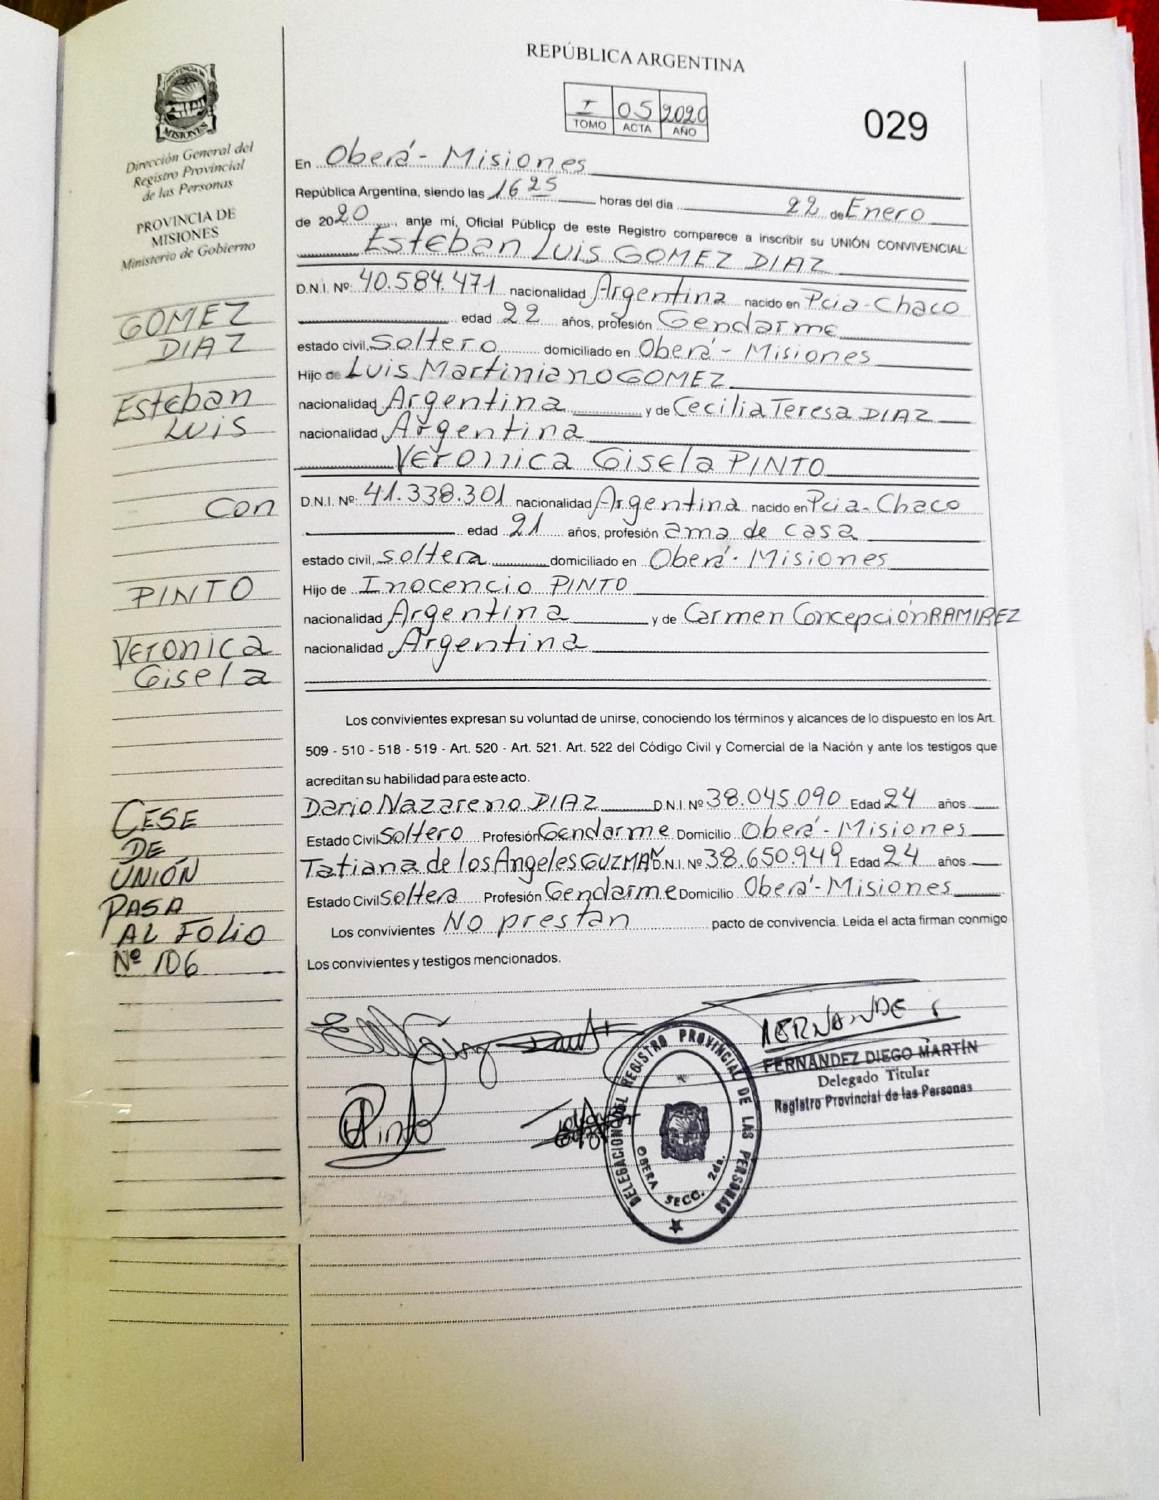 REPÚBLICA ARGENTINA
I 05 2020
TOMO ACTA AÑO
029
PROVINCIA DE
MISIONES
Dirección General del
Registro Provincial
de las Personas
PROVINCIA DE
MISIONES
Ministerio de Gobierno
GOMEZ
DIAZ
Esteban
LUIS
Con
PINTO
Veronica
Gisela
CESE
DE
UNIÓN
PASA
AL FOLIO
Nº 106
En Oberá - Misiones
República Argentina, siendo las 16 25 horas del día 22 de Enero
de 2020, ante mí, Oficial Público de este Registro comparece a inscribir su UNIÓN CONVIVENCIAL:
Esteban Luis GOMEZ DIAZ
D.N.I. Nº: 40.584.471 nacionalidad Argentina nacido en Pcia-Chaco
edad 22 años, profesión Gendarme
estado civil, Soltero domiciliado en Oberá - Misiones
Hijo de Luis Martiniano GOMEZ
nacionalidad Argentina y de Cecilia Teresa DIAZ
nacionalidad Argentina
Veronica Gisela PINTO
D.N.I. Nº: 41.338.301 nacionalidad Argentina nacido en Pcia-Chaco
edad 21 años, profesión ama de casa
estado civil, soltera domiciliado en Oberá - Misiones
Hijo de Inocencio PINTO
nacionalidad Argentina y de Carmen Concepción RAMIREZ
nacionalidad Argentina
Los convivientes expresan su voluntad de unirse, conociendo los términos y alcances de lo dispuesto en los Art.
509 - 510 - 518 - 519 - Art. 520 - Art. 521. Art. 522 del Código Civil y Comercial de la Nación y ante los testigos que
acreditan su habilidad para este acto.
Dario Nazareno DIAZ D.N.I. Nº 38.045.090 Edad 24 años
Estado Civil Soltero Profesión Gendarme Domicilio Oberá - Misiones
Tatiana de los Angeles GUZMAN D.N.I. Nº 38.650.949 Edad 24 años
Estado Civil Soltera Profesión Gendarme Domicilio Oberá - Misiones
Los convivientes No prestan pacto de convivencia. Leida el acta firman conmigo
Los convivientes y testigos mencionados.
Pinto
DELEGACION DEL REGISTRO PROVINCIAL DE LAS PERSONAS
OBERA SECC. 2da.
FERNANDEZ DIEGO MARTÍN
Delegado Titular
Registro Provincial de las Personas